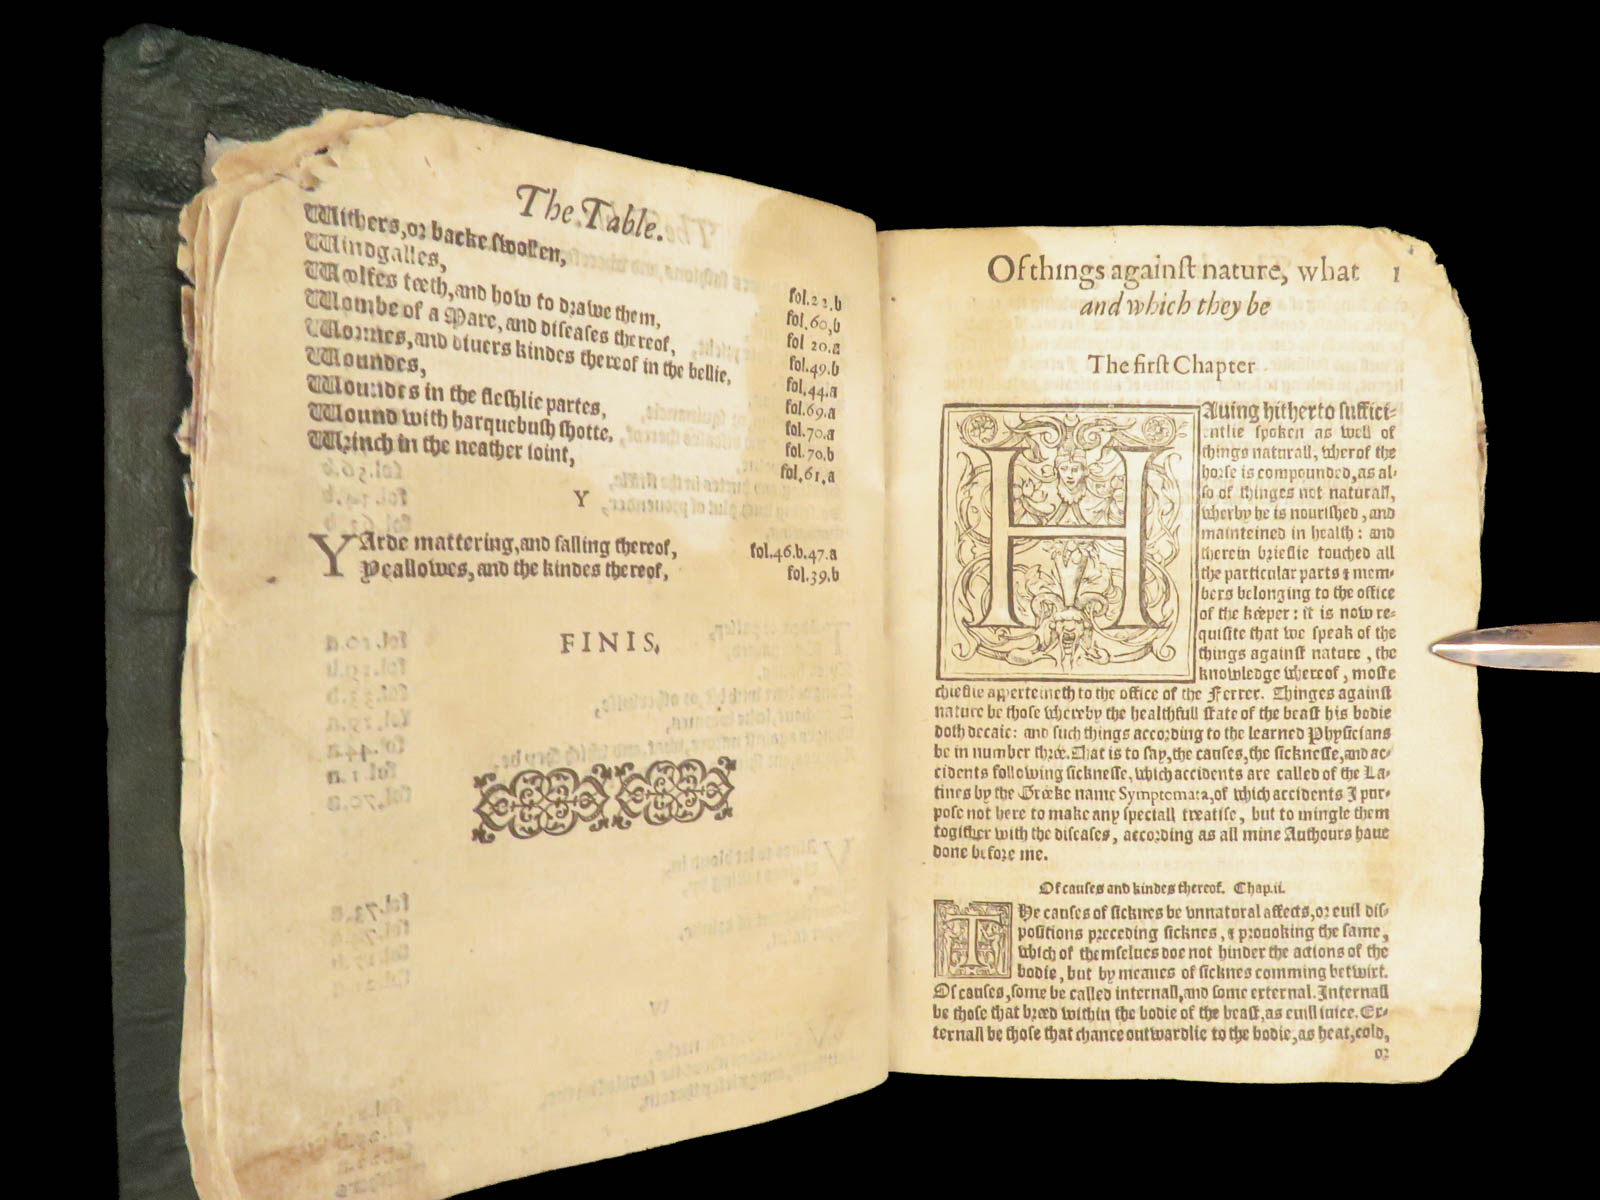 The Table.
Withers, or backe swollen, fol.22.b
Windgalles, fol.60,b
Woolfes teeth, and how to drawe them, fol 20.a
Wombe of a Mare, and diseases thereof, fol.49.b
Wormes, and diuers kindes thereof in the bellie, fol.44.a
Woundes, fol.69.a
Woundes in the fleshlie partes, fol.70.a
Wound with harquebush shotte, fol.70.b
Wrinch in the neather ioint, fol.61,a
Y
YArde mattering, and falling thereof, fol.46.b.47.a
Yeallowes, and the kindes thereof, fol.39.b
FINIS.
Of things against nature, what 1
and which they be
The first Chapter
HAuing hitherto suffici-
entlie spoken as well of
things naturall, wherof the
horse is compounded, as al-
so of thinges not naturall,
wherby he is nourished, and
mainteined in health: and
therein brieflie touched all
the particular parts & mem-
bers belonging to the office
of the kéeper: it is now re-
quisite that we speak of the
things against nature, the
knowledge whereof, moste
chieflie apperteineth to the office of the Ferrer. Thinges against
nature be those whereby the healthfull state of the beast his bodie
doth decaie: and such things according to the learned Physicians
be in number thrée. That is to say, the causes, the sicknesse, and ac-
cidents following sicknesse, which accidents are called of the La-
tines by the Gréeke name Symptomata, of which accidents I pur-
pose not here to make any speciall treatise, but to mingle them
togither with the diseases, according as all mine Authours haue
done before me.
Of causes and kindes thereof. Chap.ii.
THe causes of sicknes be vnnatural affects, or euil dis-
positions preceding sicknes, & prouoking the same,
which of themselues doe not hinder the actions of the
bodie, but by meanes of sicknes comming betwixt.
Of causes, some be called internall, and some external. Internall
be those that bréed within the bodie of the beast, as euill iuice. Ex-
ternall be those that chance outwardlie to the bodie, as heat, cold,
or